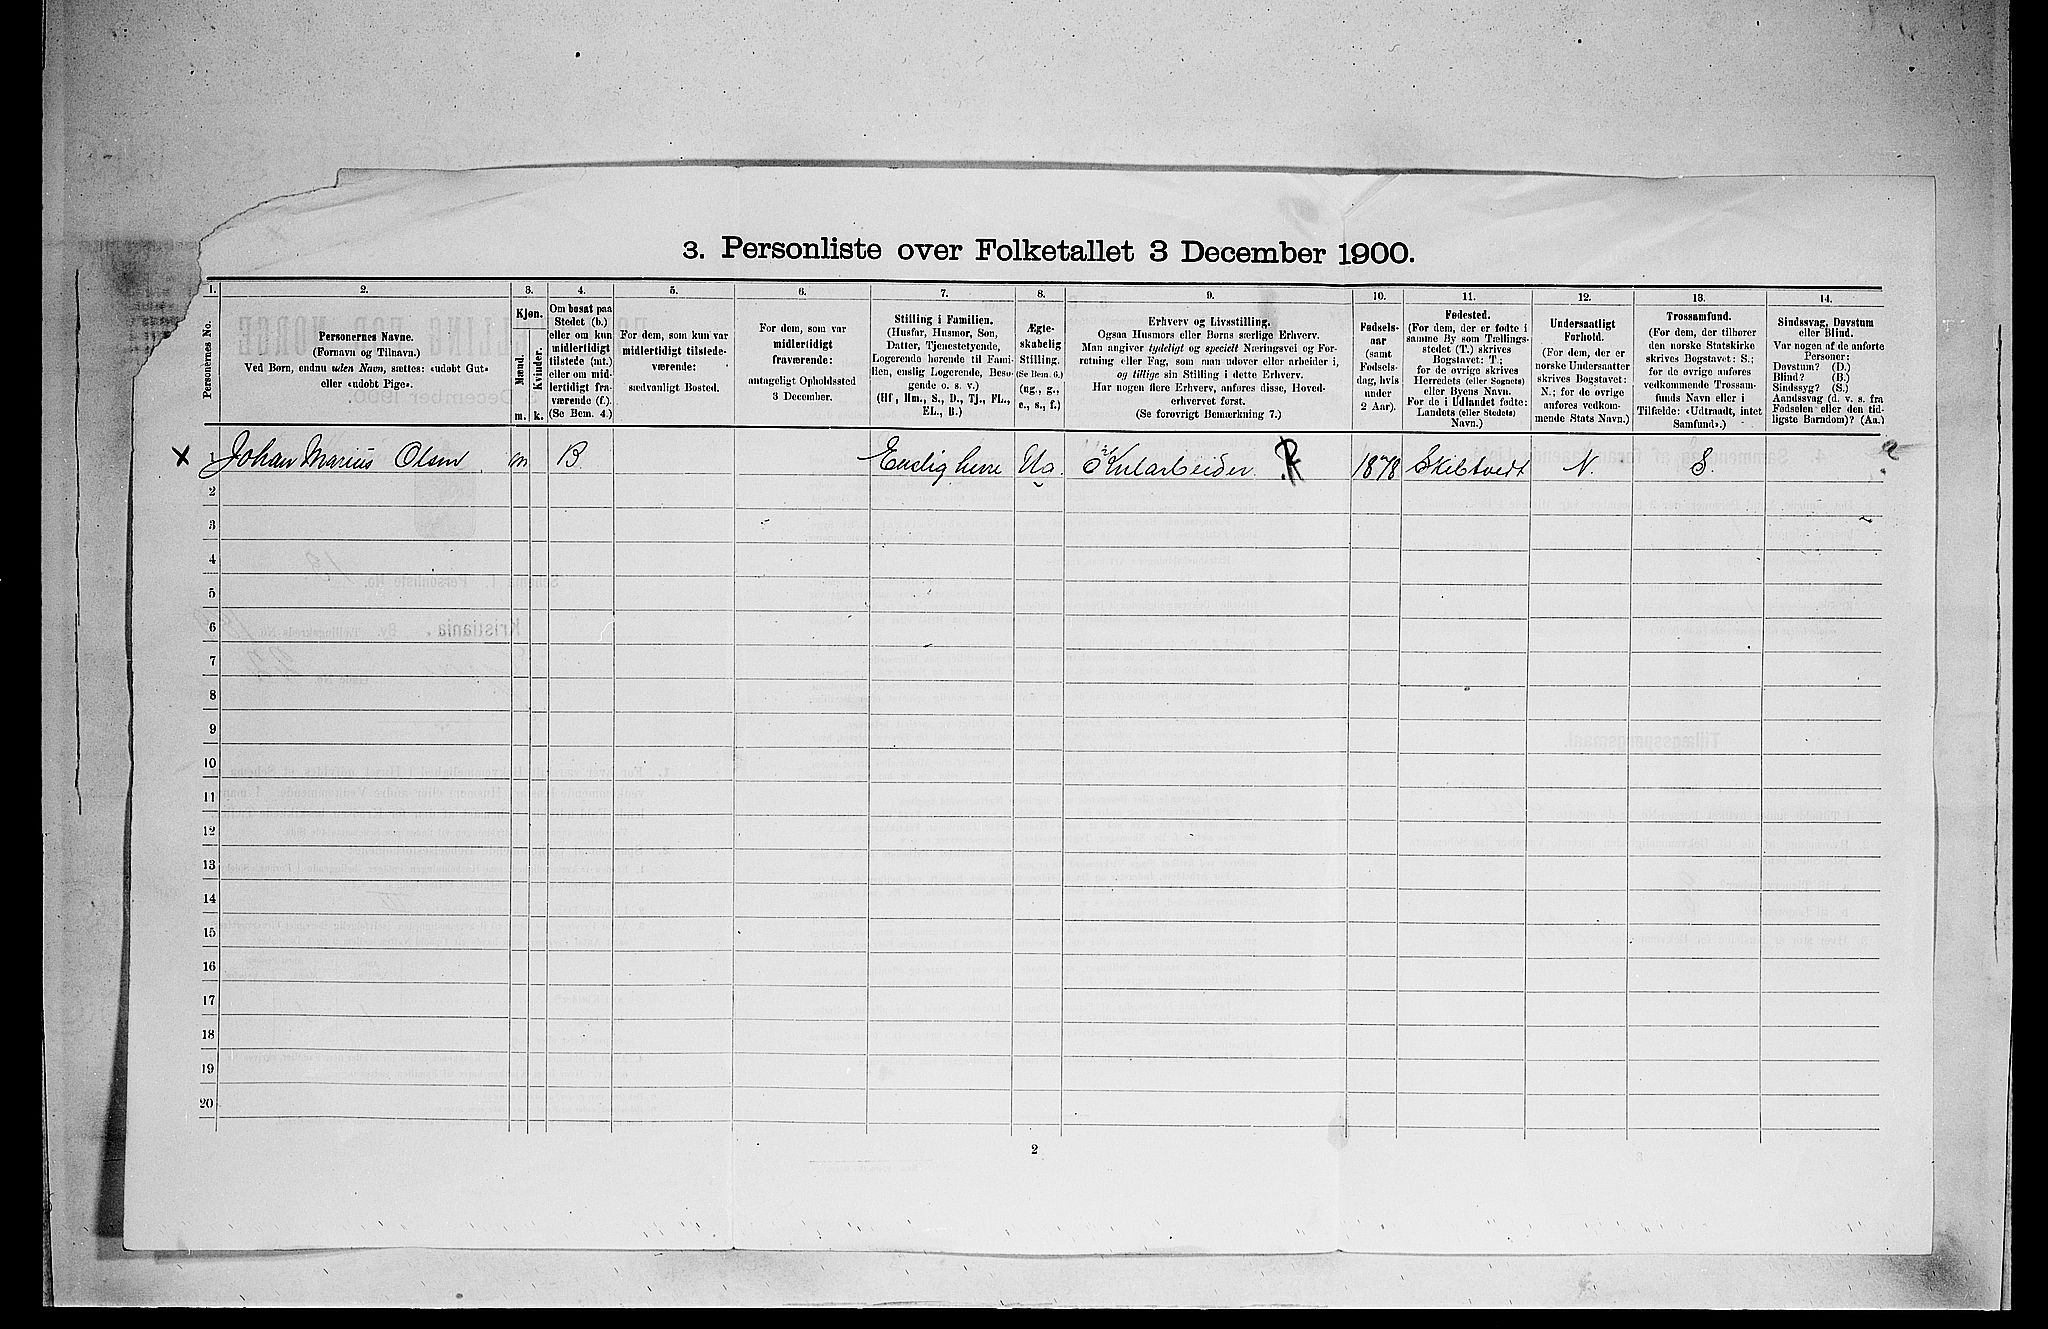 3. Personliste over Folketallet 3 December 1900.
1.
Personernes No.
2.
Personernes Navne.
(Fornavn og Tilnavn.)
Ved Børn, endnu uden Navn, sættes: «udøbt Gut»
eller «udøbt Pige».
3.
Kjøn.
Mænd.
Kvinder.
m. k.
4.
Om bosat paa
Stedet (b.)
eller om kun
midlertidigt
tilstede (mt.)
eller om mid-
lertidigt fra-
værende (f.).
(Se Bem. 4.)
5.
For dem, som kun var
midlertidigt tilstede-
værende:
sædvanligt Bosted.
6.
For dem, som var
midlertidigt
fraværende:
antageligt Opholdssted
3 December.
7.
Stilling i Familien.
(Husfar, Husmor, Søn,
Datter, Tjenestetyende,
Logerende hørende til Fami-
lien, enslig Logerende, Besø-
gende o. s. v.)
(Hf., Hm., S., D., Tj., FL.,
EL., B.)
8.
Ægte-
skabelig
Stilling.
(Se Bem. 6.)
(ug., g.,
e., s., f.)
9.
Erhverv og Livsstilling.
Ogsaa Husmors eller Børns særlige Erhverv.
Man angiver tydeligt og specielt Næringsvei og For-
retning eller Fag, som man udøver eller arbeider i,
og tillige sin Stilling i dette Erhverv.
Har nogen flere Erhverv, anføres disse, Hoved-
erhvervet først.
(Se forøvrigt Bemærkning 7.)
10.
Fødsels-
aar
(samt
Fødsels-
dag, hvis
under
2 Aar).
11.
Fødested.
(For dem, der er fødte i
samme By som Tællings-
stedet (T.) skrives
Bogstavet: T.;
for de øvrige skrives
Herredets (eller Sognets)
eller Byens Navn.
For de i Udlandet fødte:
Landets (eller Stedets)
Navn.)
12.
Undersaatligt
Forhold.
(For dem, der er
norske Undersaatter
skrives Bogstavet:
N.; for de øvrige
anføres vedkom-
mende Stats Navn.)
13.
Trossamfund.
(For dem, der tilhører
den norske Statskirke
skrives Bogstavet: S.;
for de øvrige anføres
vedkommende Trossam-
funds Navn eller i
Tilfælde: «Udtraadt, intet
Samfund».)
14.
Sindssvag, Døvstum
eller Blind.
Var nogen af de anførte
Personer:
Døvstum? (D.)
Blind? (B.)
Sindssyg? (S.)
Aandssvag (d. v. s. fra
Fødselen eller den tid-
ligste Barndom)? (Aa.)
x 1 Johan Marius Olsen m B Enslig herre Ug. Kularbeider. 1878 Skibtvedt N. S.
2
3
4
5
6
7
8
9
10
11
12
13
14
15
16
17
18
19
20
2